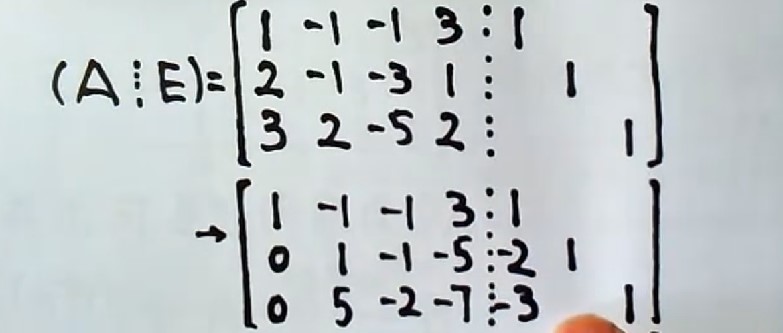 (A⋮E)= [1 -1 -1 3 ⋮ 1
2 -1 -3 1 ⋮ 1
3 2 -5 2 ⋮ 1]
→ [1 -1 -1 3 ⋮ 1
0 1 -1 -5 ⋮ -2 1
0 5 -2 -7 ⋮ -3 1]